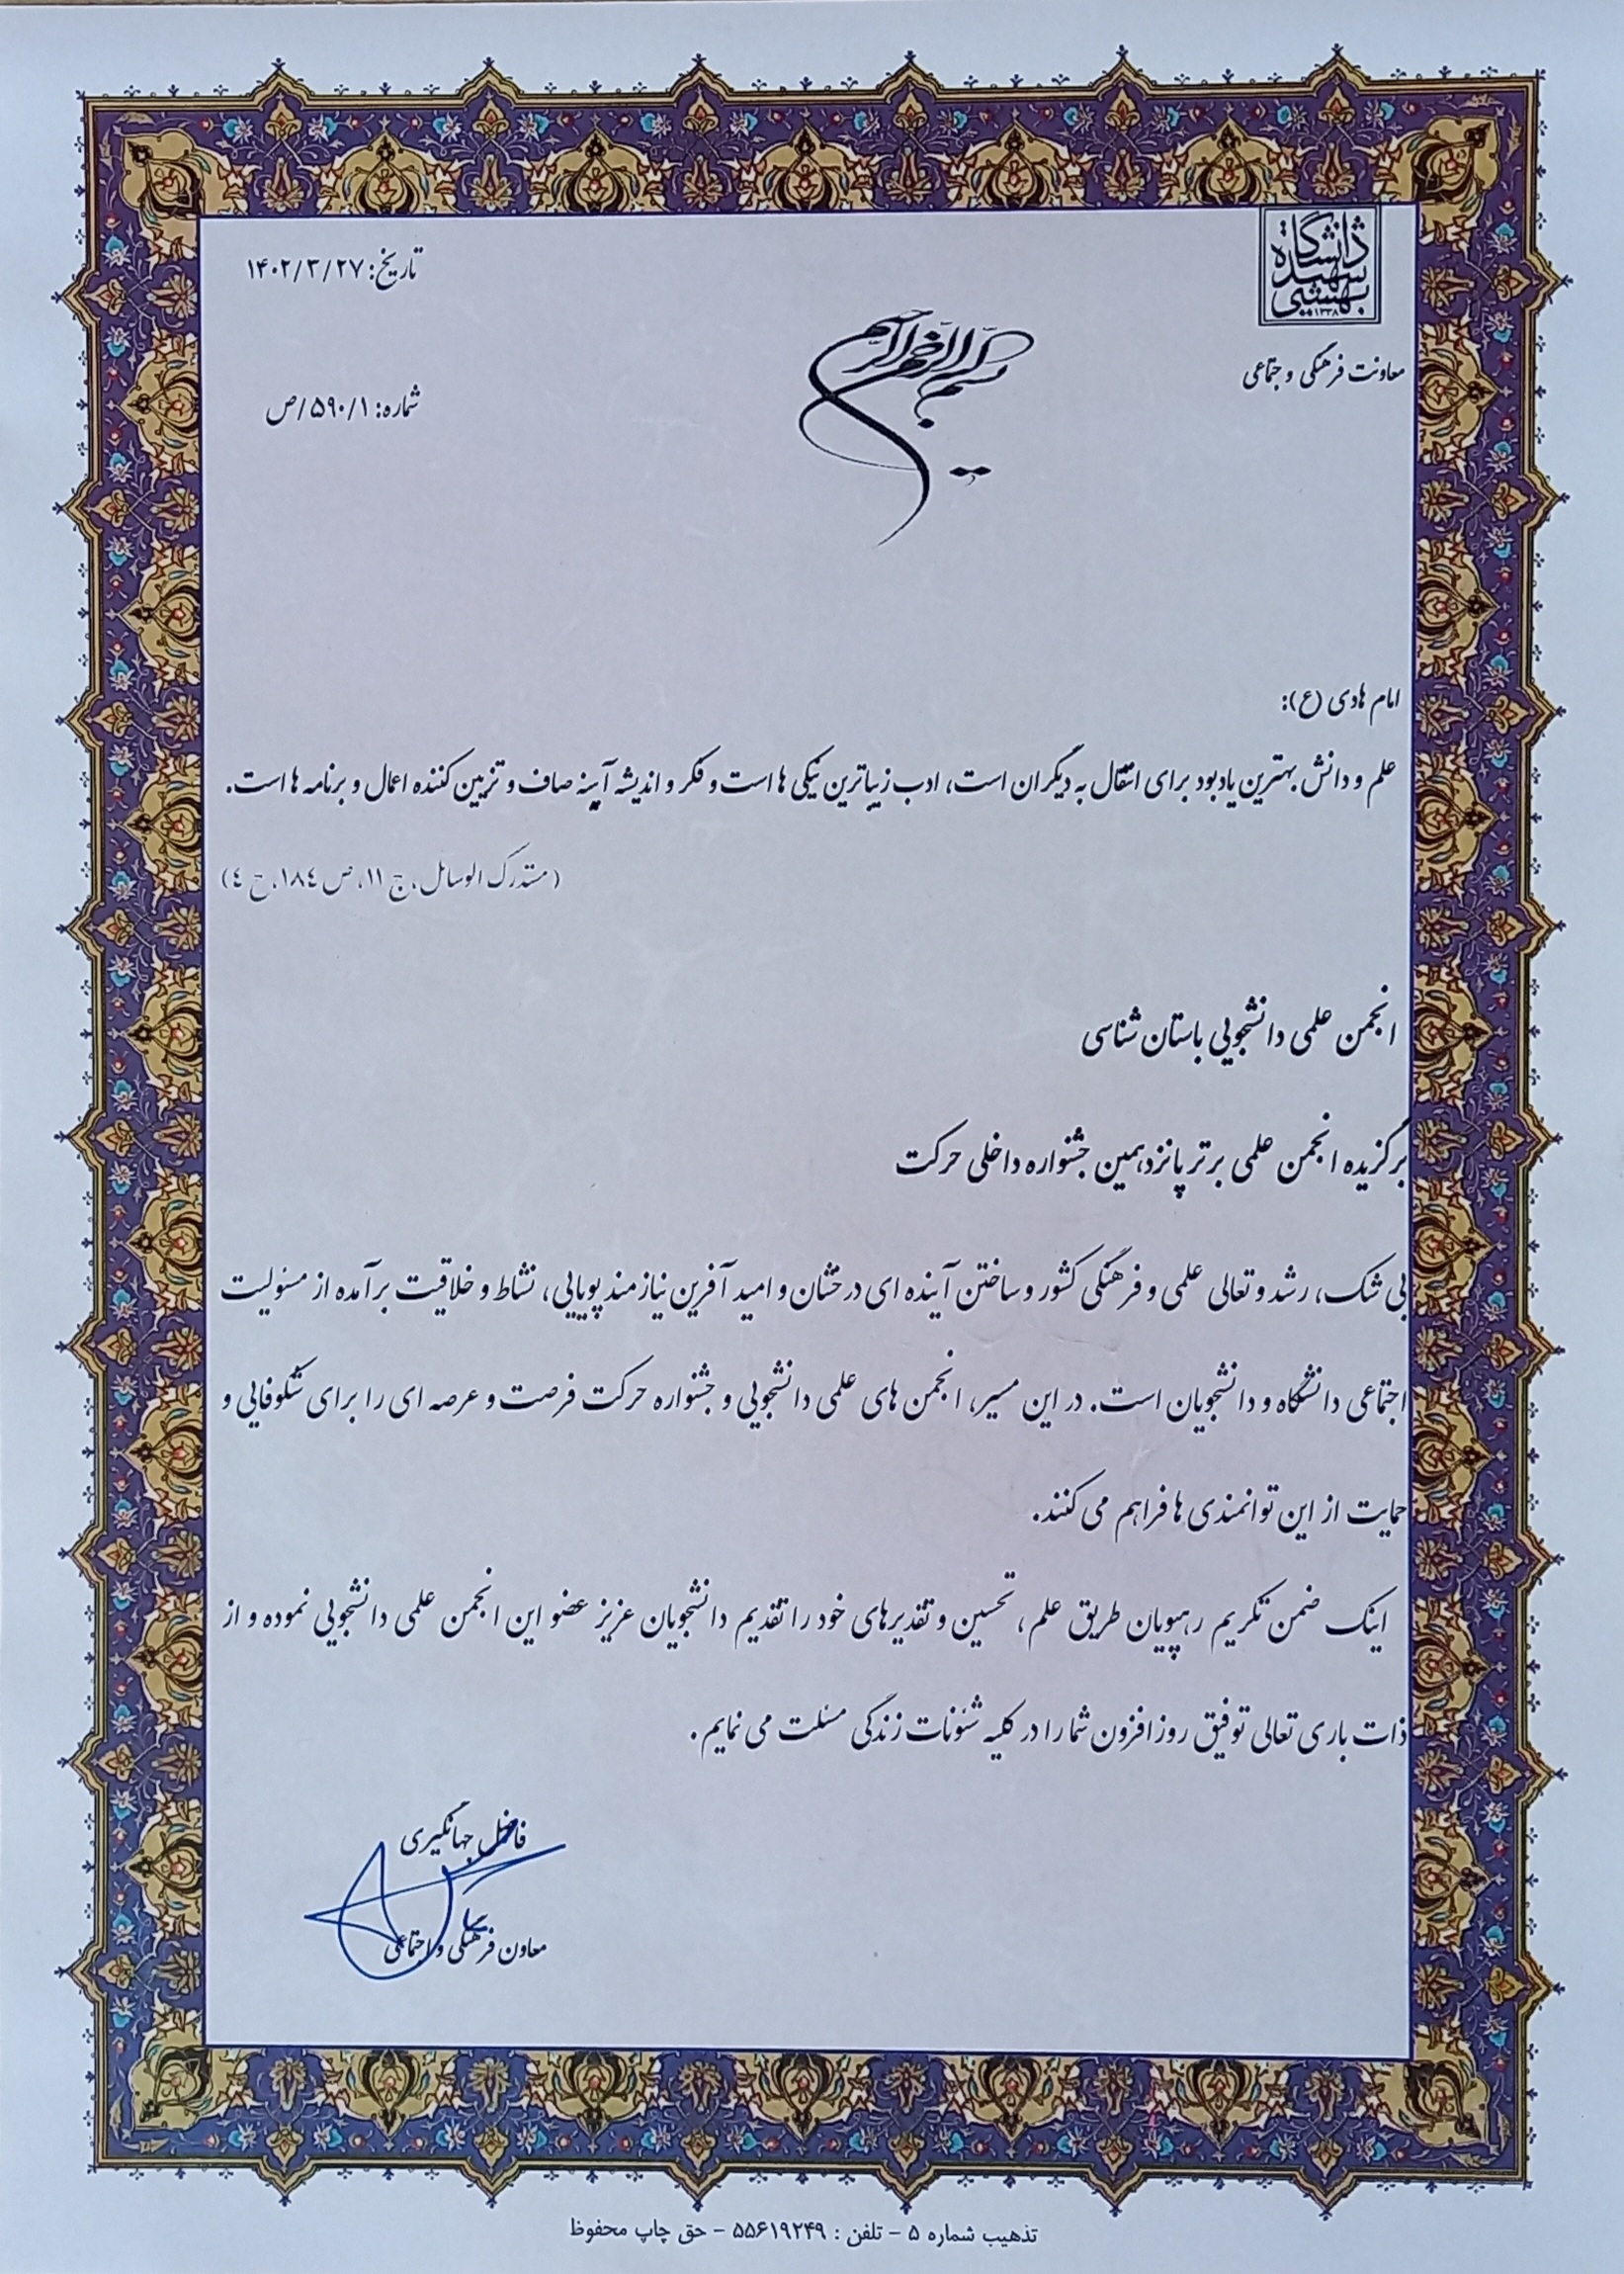 دانشگاه
شهید
بهشتی
۱۳۳۸
معاونت فرهنگی و اجتماعی
تاریخ: ۱۴۰۲/۳/۲۷
شماره: ۵۹۰/۱/ص
بسم الله الرحمن الرحیم
امام هادی (ع):
علم و دانش بهترین یادبود برای انتقال به دیگران است، ادب زیباترین نیکی ها است و فکر و اندیشه آینه صاف و تزیین کننده اعمال و برنامه ها است.
(مستدرک الوسائل، ج ۱۱، ص ۱۸٤، ح ٤)
انجمن علمی دانشجویی باستان شناسی
برگزیده انجمن علمی برتر پانزدهمین جشنواره داخلی حرکت
بی شک، رشد و تعالی علمی و فرهنگی کشور و ساختن آینده ای درخشان و امید آفرین نیازمند پویایی، نشاط و خلاقیت برآمده از مسئولیت
اجتماعی دانشگاه و دانشجویان است. در این مسیر، انجمن های علمی دانشجویی و جشنواره حرکت فرصت و عرصه ای را برای شکوفایی و
حمایت از این توانمندی ها فراهم می کنند.
اینک ضمن تکریم رهپویان طریق علم، تحسین و تقدیرهای خود را تقدیم دانشجویان عزیز عضو این انجمن علمی دانشجویی نموده و از
ذات باری تعالی توفیق روز افزون شما را در کلیه شئونات زندگی مسئلت می نمایم.
فاضل جهانگیری
معاون فرهنگی و اجتماعی
تذهیب شماره ۵ - تلفن : ۵۵۶۱۹۲۴۹ - حق چاپ محفوظ